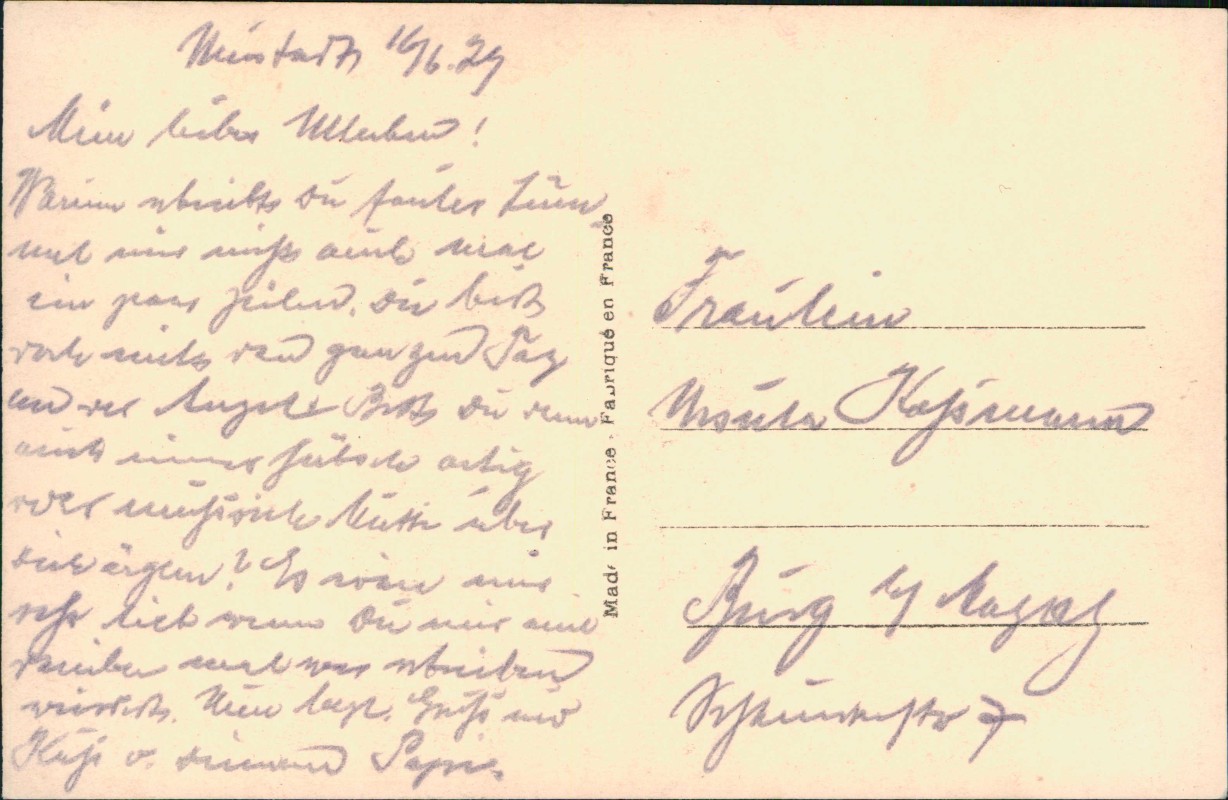 Neustadt 16/6.29
Mein liebes Ulleken!
Warum schreibst Du fauler Lüm
mel mir nicht auch mal
ein paar Zeilen. Du bist
doch nicht den ganzen Tag
an der Angel? Bist Du denn
auch immer hübsch artig
oder muß sich Mutti über
dich ärgern? Es wäre mir
sehr lieb wenn Du mir auch
darüber mal was schreiben
würdest. Nun herzl. Gruß und
Kuß v. deinem Papi.
Made in France - Fabriqué en France
Fräulein
Ursula Kaßmann
Burg b/ Magdbg